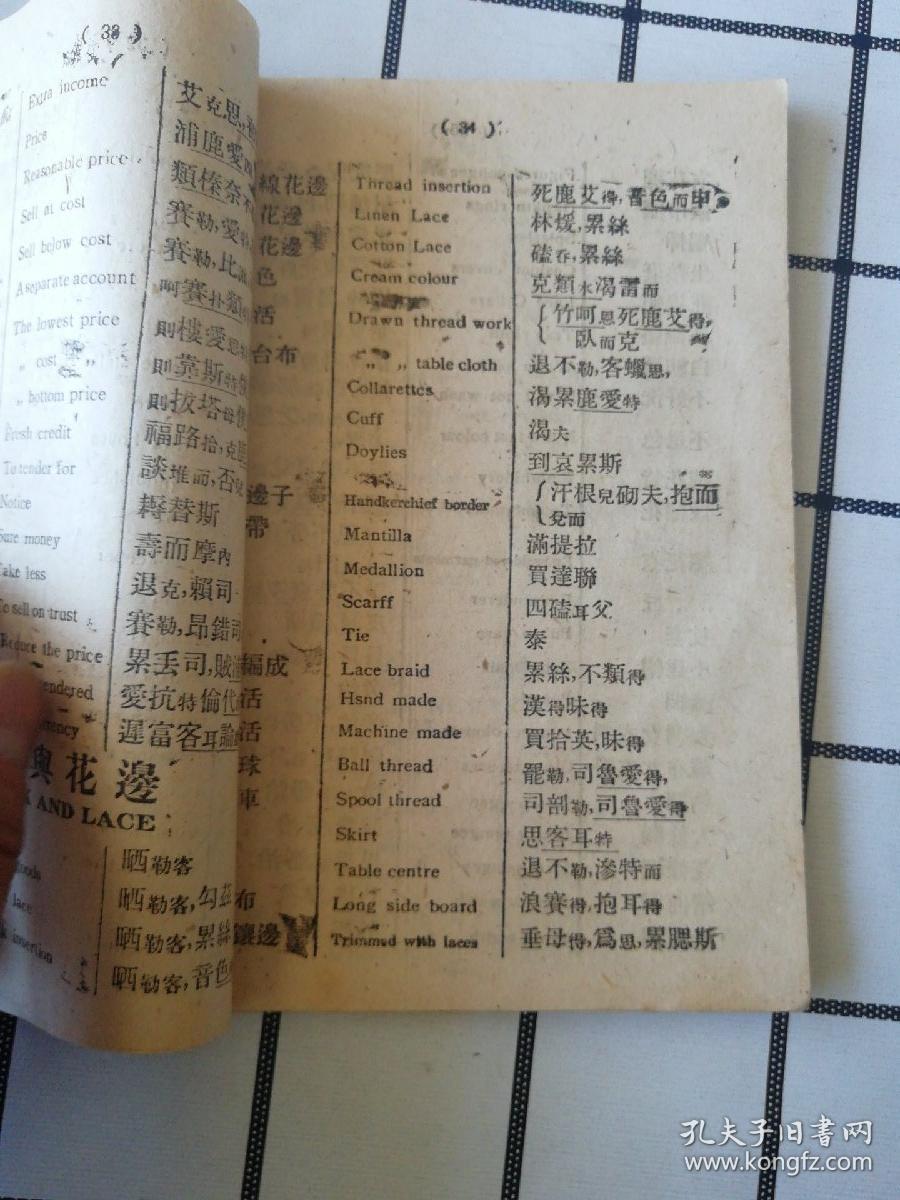 ( 33 )
Extra income 艾克思
Price 浦鹿愛
Reasonable price 類榛奈
Sell at cost 賽勒,愛
Sell below cost 賽勒,比
A separate account 呵賽扑類
The lowest price 則樓愛思
„ cost „ 則靠斯特
„ bottom price 則拔塔母
Fresh credit 福路拾,克
To tender for 談堆而,否
Notice 耨替斯
Sure money 壽而摩內
Take less 退克,賴司
To sell on trust 賽勒,昂錯司
Reduce the price 累丢司,賊
endered 愛抗特倫代
rency 遲富客耳論
與花邊
AND LACE
Goods 晒勒客
lace 晒勒客,勾
晒勒客,累絲
insertion 晒勒客,音色
( 34 )
線花邊 Thread insertion 死鹿艾得,音色而申
花邊 Linen Lace 林煖,累絲
花邊 Cotton Lace 磕吞,累絲
色 Cream colour 克類水渴畱而
活 Drawn thread work 竹呵恩死鹿艾得,
臥而克
台布 „ „ table cloth 退不勒,客蠟思,
Collarettes 渴累鹿愛特
Cuff 渴夫
Doylies 到哀累斯
邊子 Handkerchief border 汗根兒砌夫,抱而
兌而
帶 Mantilla 滿提拉
Medallion 買達聯
Scarff 四磕耳父
Tie 泰
編成 Lace braid 累絲,不類得
活 Hsnd made 漢得昧得
活 Machine made 買拾英,昧得
球 Ball thread 罷勒,司魯愛得,
車 Spool thread 司剖勒,司魯愛得
Skirt 思客耳特
Table centre 退不勒,滲特而
布 Long side board 浪賽得,抱耳得
鑲邊 Trimmed with laces 垂母得,爲思,累腮斯
孔夫子旧书网
www.kongfz.com